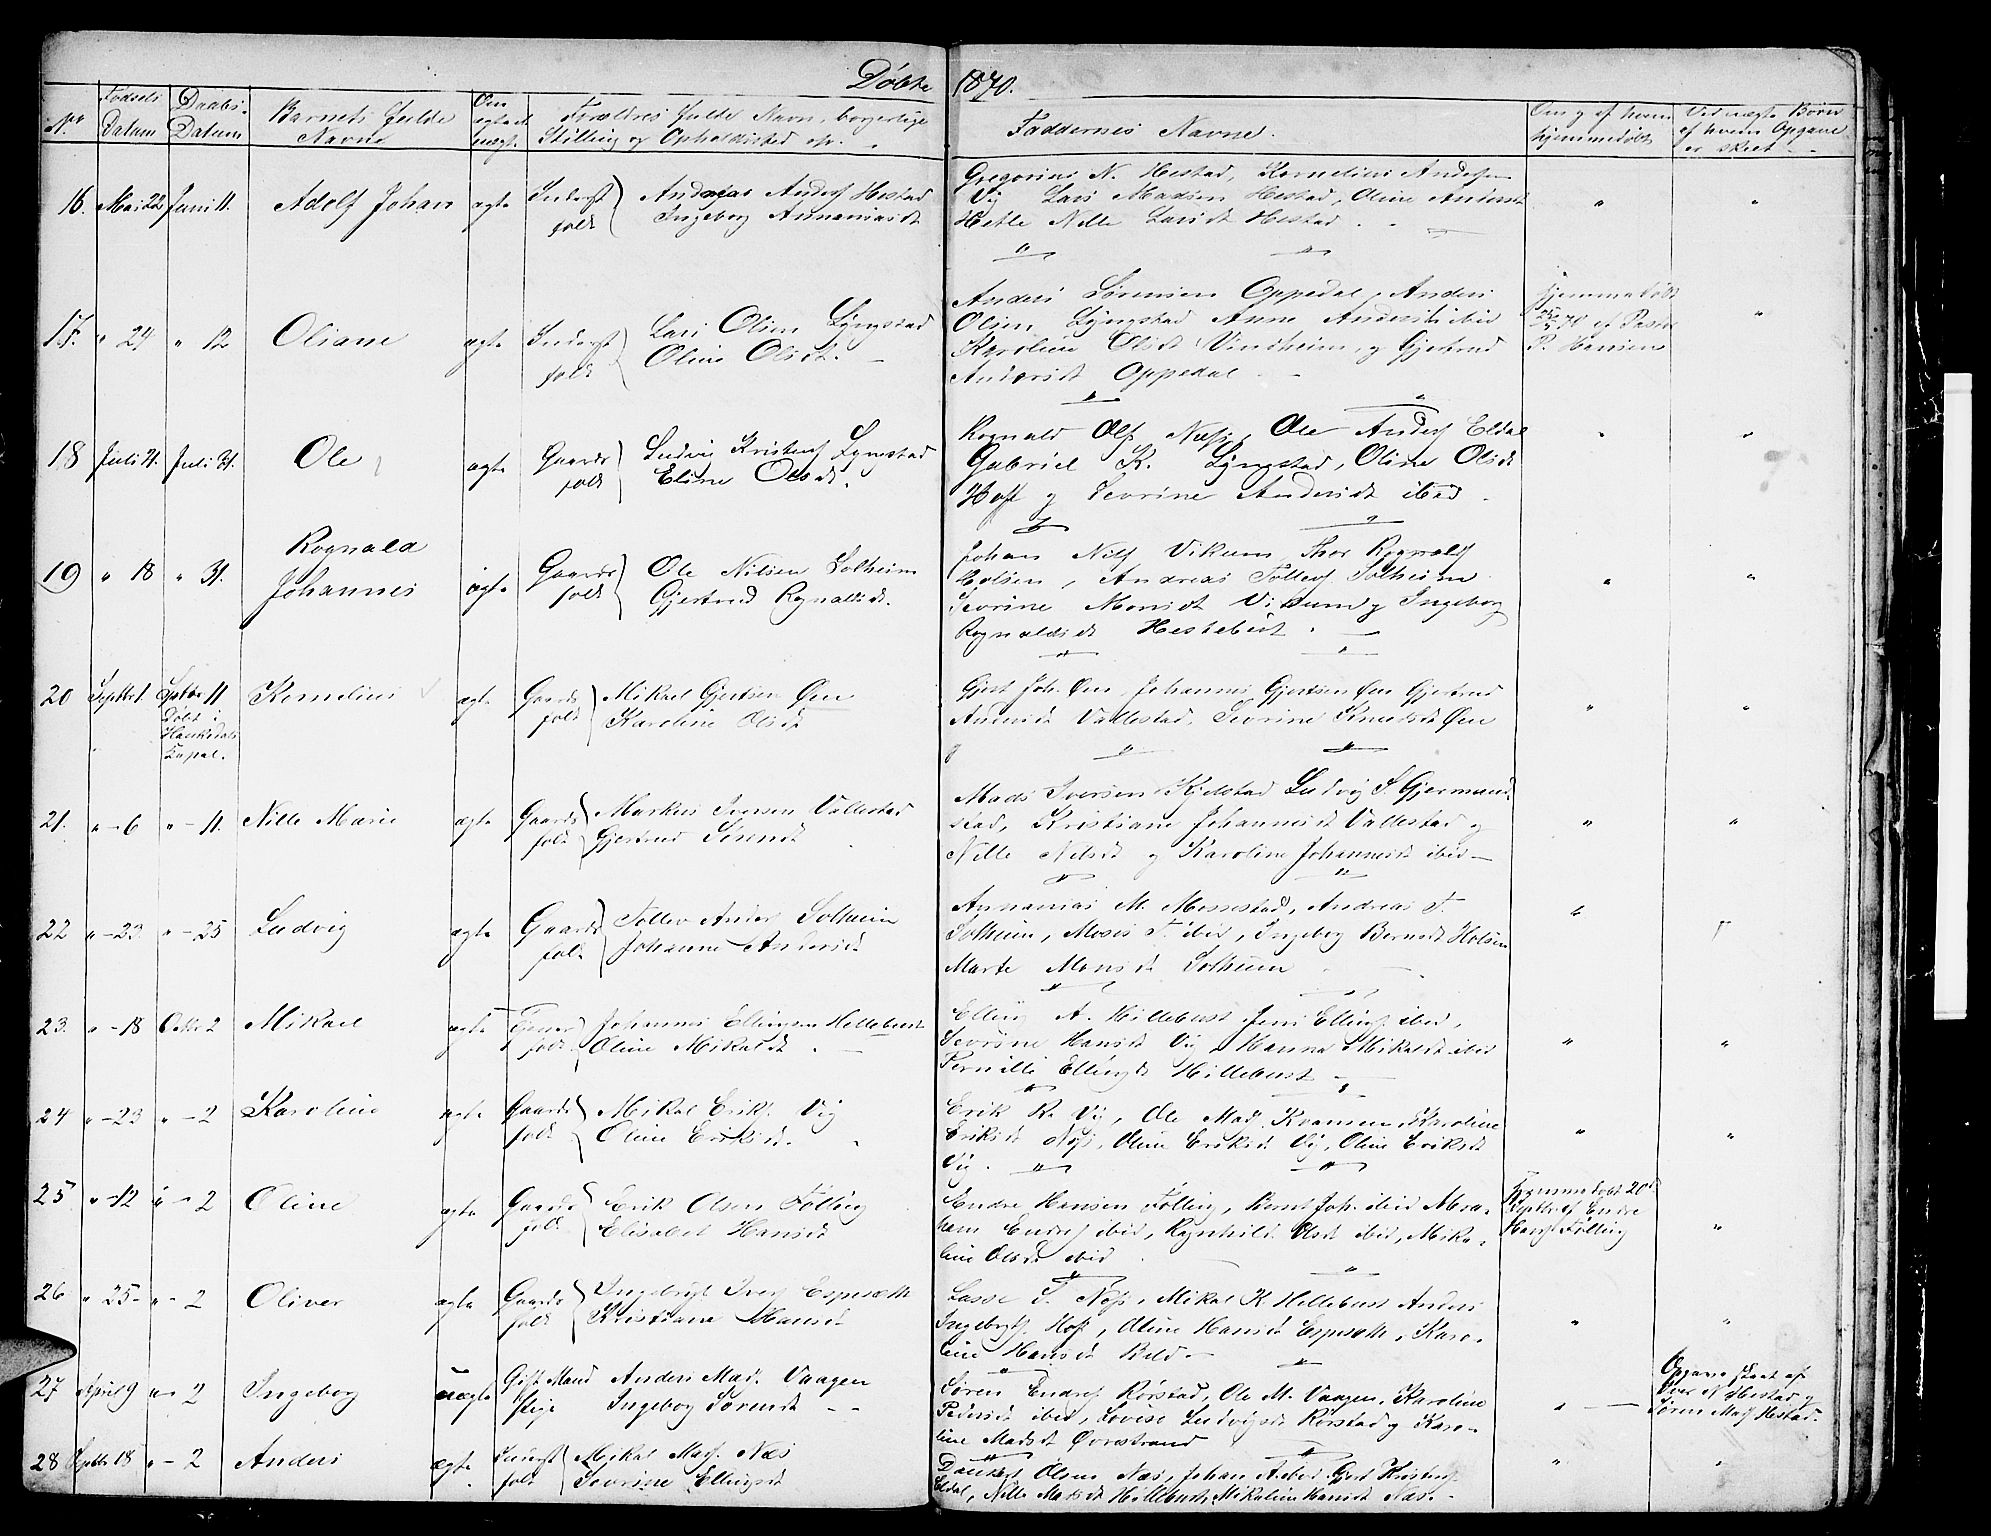 Døbte 1870.
No Fødsels Datum Daabs Datum Barnets fulde Navn Om ægte el. uægt. Forældres fulde Navn, borgerlige Stilling og Opholdssted etc.
Faddernes Navne. Om og af hvem hjemmedøbt Ved uægte Børn af hvem Opgave er skeet
16. Mai 22 Juni 11. Adolf Johan ægte Inderst folk Andreas Anders Hestad
Ingeborg Annaniasdt
Gregorius N. Hestad, Kornelius Anders
Vig Lars Madsen Hestad, Oline Andersdt
Hetle Nille Larsdt Hestad
17. " 24 " 12 Oliane ægte Inderst folk Lars Olsen Lyngstad
Oline Olsdt.
Anders Sørensen Oppedal, Anders
Olsen Lyngstad Anne Andersdt ibid
Karoline Olsdt Vindheim, og Gjertrud
Andersdt Oppedal
Hjemmedøbt
25/5 70 af Pastor
P. Hansen
18 Juli 21. Juli 31. Ole ægte Gaards folk Ludvig Kristens Lyngstad
Eline Olsdt.
Rognald Ols. Næss, Ole Anders Eldal
Gabriel K. Lyngstad, Oline Olsdt
Hoff og Sevrine Andersdt ibid
19 " 18 " 31. Rognald
Johannes ægte Gaards folk Ole Nilsen Solheim
Gjertrud Rognaldsdt.
Johan Nils Vikum, Thor Rognalds
Holsen, Andreas Tollefs Solheim
Sevrine Monsdt Vikum og Ingeborg
Rognaldsdt Hestebeit
20 Septbr 1. Septbr 11 Kornelius ægte Gaards folk Mikael Gjertsen Øen
Karoline Olsdt
Døbt i
Haukedals
Kapel.
Gjert Joh. Øen, Johannes Gjertsen Øen Gjertrud
Andersdt Vallestad, Sevrine Knudsdt Øen
21. " - 6 " - 11. Nille Marie ægte Gaards folk Markus Iversen Vallestad
Gjertrud Sørensdt
Mads Iversen Kjelstad Ludvig S Gjermund-
stad, Kristiane Johannesdt Vallestad og
Nille Nilsdt og Karoline Johannesdt ibid
22 " - 23 " - 25 Ludvig ægte Gaards folk Tollev Anders Solheim
Johanne Andersdt
Annanias M. Mossestad, Andreas T.
Solheim, Moses T. ibid, Ingeborg Berntsdt Holsen
Marte Monsdt Solheim
23. " - 18 Octbr 2 Mikael ægte Gaards folk Johannes Ellingsen Hillebust
Oline Mikaldt.
Elling A. Hillebust Jens Ellings. ibid,
Sevrine Hansdt Vig, Hanna Mikaldt ibid
Pernille Ellingsdt Hillebust
24 " - 23 " - 2 Karoline ægte Gaards folk Mikal Eriks. Vig
Oline Eriksdt.
Erik R. Vig, Ole Mads. Kvamen, Karoline
Eriksdt Næss, Oline Eriksdt Vig, Oline Eriksdt
Vig.
25 " - 12 " - 2 Oline ægte Gaards folk Erik Olsen Følling
Elisabet Hansdt
Endre Hansen Følling, Bernt Joh. ibid Abra-
ham Endres ibid, Ragnhild Olsdt ibid, Mika-
line Olsdt ibid
Hjemmedøbt 20de
Septbr af Endre
Hans. Følling
26 " 25 " - 2 Oliver ægte Gaards folk Ingebrigt Ivers Espesæth
Kristiane Hansdt
Lasse T. Næss, Mikal K. Hillebust Anders
Ingebrigts. Hoff, Oline Hansdt Espesæth, Karo-
line Hansdt Beld
27 April 9 " - 2 Ingeborg uægte Gift Mand Pige Anders Mads. Vaagen
Ingeborg Sørensdt
Søren Endres Rørstad, Ole M. Vaagen, Karoline
Pedersdt ibid, Lovise Ludvigsdt Rørstad og Karo-
line Madsdt Øvrestrand
Opgave skeet af
Iver N Hestad og
Søren Mads Hestad.
28 Septbr 18 " - 2 Anders ægte Inderst folk Mikal Mads. Næs
Sevrine Ellingsdt
Olsen Næs, Johan A. ibid. Gjert Kristens
Eldal, Nille Madsdt Hillebust, Mikaline Hansdt Næs.